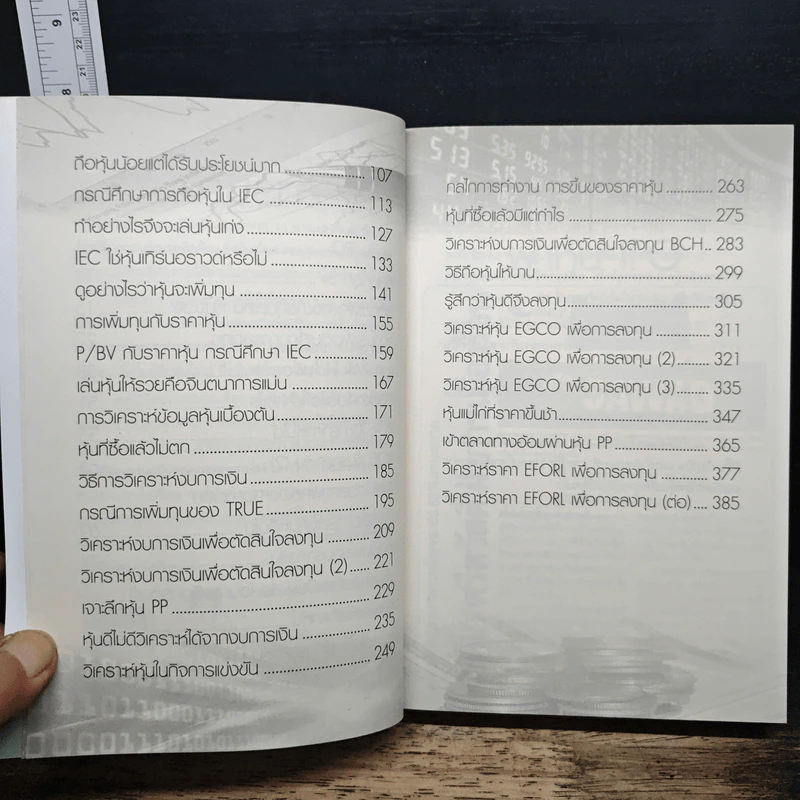 ถือหุ้นน้อยแต่ได้รับประโยชน์มาก ..................... 107
กรณีศึกษาการถือหุ้นใน IEC ........................ 113
ทำอย่างไรจึงจะเล่นหุ้นเก่ง ........................... 127
IEC ใช่หุ้นเทิร์นอราวด์หรือไม่ ....................... 133
ดูอย่างไรว่าหุ้นจะเพิ่มทุน ............................ 141
การเพิ่มทุนกับราคาหุ้น ............................... 155
P/BV กับราคาหุ้น กรณีศึกษา IEC ............... 159
เล่นหุ้นให้รวยคือจินตนาการแม่น .................. 167
การวิเคราะห์ข้อมูลหุ้นเบื้องต้น ..................... 171
หุ้นที่ซื้อแล้วไม่ตก ..................................... 179
วิธีการวิเคราะห์งบการเงิน ........................... 185
กรณีการเพิ่มทุนของ TRUE ........................ 195
วิเคราะห์งบการเงินเพื่อตัดสินใจลงทุน ........... 209
วิเคราะห์งบการเงินเพื่อตัดสินใจลงทุน (2) ...... 221
เจาะลึกหุ้น PP ......................................... 229
หุ้นดีไม่ดีวิเคราะห์ได้จากงบการเงิน ............... 235
วิเคราะห์หุ้นในกิจการแข่งขัน ....................... 249
กลไกการทำงาน การขึ้นของราคาหุ้น ............ 263
หุ้นที่ซื้อแล้วมีแต่กำไร ................................ 275
วิเคราะห์งบการเงินเพื่อตัดสินใจลงทุน BCH .. 283
วิธีถือหุ้นให้นาน ........................................ 299
รู้สึกว่าหุ้นดีจึงลงทุน .................................. 305
วิเคราะห์หุ้น EGCO เพื่อการลงทุน .............. 311
วิเคราะห์หุ้น EGCO เพื่อการลงทุน (2) ......... 321
วิเคราะห์หุ้น EGCO เพื่อการลงทุน (3) ......... 335
หุ้นแม่ไก่ที่ราคาขึ้นช้า ................................. 347
เข้าตลาดทางอ้อมผ่านหุ้น PP ..................... 365
วิเคราะห์ราคา EFORL เพื่อการลงทุน ........... 377
วิเคราะห์ราคา EFORL เพื่อการลงทุน (ต่อ) .... 385